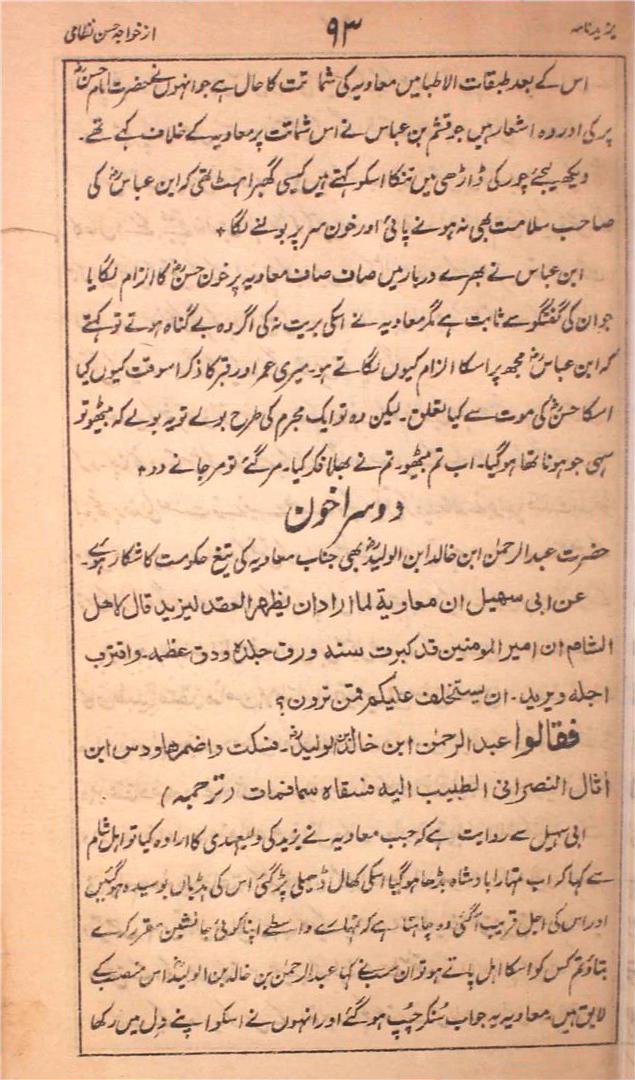 یزید نامہ ۹۳ از خواجہ حسن نظامی
اس کے بعد طبقات الاطبا میں معاویہ کی شماتت کا حال ہے جو انہوں نے حضرت امام حسنؓ
پر کی اور وہ اشعار ہیں جو قثم بن عباس نے اس شماتت پر معاویہ کے خلاف کہے تھے۔
دیکھ لیجئے چور کی ڈاڑھی میں تنکا اسکو کہتے ہیں کیسی گھبراہٹ تھی کہ ابن عباسؓ کی
صاحب سلامت بھی نہ ہونے پائی اور خون سر پر بولنے لگا+
ابن عباس نے بھرے دربار میں صاف صاف معاویہ پر خون حسنؓ کا الزام لگایا
جو ان کی گفتگو سے ثابت ہے مگر معاویہ نے اسکی بریت نہ کی اگر وہ بے گناہ ہوتے تو کہتے
کہ ابن عباسؓ مجھ پر اسکا الزام کیوں لگاتے ہو۔ میری عمر اور قبر کا ذکر اسوقت کیوں کیا
اسکا حسنؓ کی موت سے کیا تعلق۔ لیکن وہ تو ایک مجرم کی طرح بولے تو یہ بولے کہ بیٹھو تو
سہی جو ہونا تھا ہو گیا۔ اب تم بیٹھو۔ تم نے بھلا فکر کیا۔ مر گئے تو مر جانے دو+
دوسرا خون
حضرت عبد الرحمٰن ابن خالد ابن الولیدؓ بھی جناب معاویہ کی تیغ حکومت کا شکار ہوئے۔
عن ابی سھیل ان معاویۃ لما اراد ان یظھر العقد لیزید قال لاھل
الشام ان امیر المومنین قد کبرت سنہ ورق جلدہ ودق عظمہ۔ واقترب
اجلہ ویرید۔ ان یستخلف علیکم فمن ترون؟
فقالوا عبد الرحمٰن ابن خالد بن الولیدؓ۔ فسکت واضمرھا ودس ابن
أثال النصرانی الطبیب الیہ فسقاہ سما فمات (ترجمہ)
ابی سہیل سے روایت ہے کہ جب معاویہ نے یزید کی ولیعہدی کا ارادہ کیا تو اہل شام
سے کہا کہ اب تمہارا بادشاہ بڈھا ہو گیا اسکی کھال ڈھیلی پڑ گئی اس کی ہڈیاں بوسیدہ ہو گئیں
اور اس کی اجل قریب آ گئی وہ چاہتا ہے کہ تمہارے واسطے اپنا کوئی جانشین مقرر کرے
بتاؤ تم کس کو اسکا اہل پاتے ہو تو ان سب نے کہا عبد الرحمٰن بن خالد بن الولیدؓ اس منصب کے
لایق ہیں۔ معاویہ یہ جواب سُنکر چُپ ہو گئے اور انہوں نے اسکو اپنے دِل میں رکھا